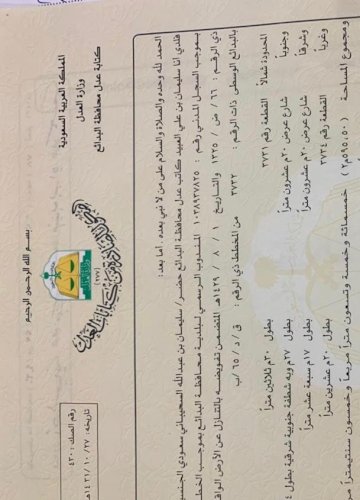 المملكة العربية السعودية
وزارة العدل
كتابة عدل محافظة البدائع
بسم الله الرحمن الرحيم
رقم الصك: ٤٢٠
تاريخه: ١٤٣١/١٠/٢٧هـ
الحمد لله وحده والصلاة والسلام على من لا نبي بعده، أما بعد:
فلدي أنا سليمان بن علي العبيد كاتب عدل محافظة البدائع حضر/ سليمان بن عبدالله السحيباني سعودي الجنسية
بموجب السجل المدني رقم: ١٠٣٨٩٣٧٨٢٥ المندوب الرسمي لبلدية محافظة البدائع بموجب
ذي الرقم: ٦٦ / ض / ١٣٣٥ والتاريخ ١ / ٨ / ١٤٢٩هـ المتضمن تفويضه بالتنازل عن الأرض
بالبدائع الوسطى ذات الرقم: ٣٧٣٢ من المخطط ذي الرقم: ق / د / ٦٥ / ب
المحدودة شمالاً القطعة رقم ٣٧٣١ بطول ٣٠م ثلاثين متراً
وجنوباً شارع عرض ٢٠م عشرون متراً بطول ٢٧م وبه شطفة جنوبية شرقية بطول
وشرقاً شارع عرض ٢٠م عشرون متراً بطول ١٧م سبعة عشر متراً
وغرباً القطعة رقم ٣٧٣٤ بطول ٢٠م عشرين متراً
ومجموع المساحة (٥٩٥,٥٠م٢) خمسمائة وخمسة وتسعون متراً مربعاً وخمسون سنتيمتراً